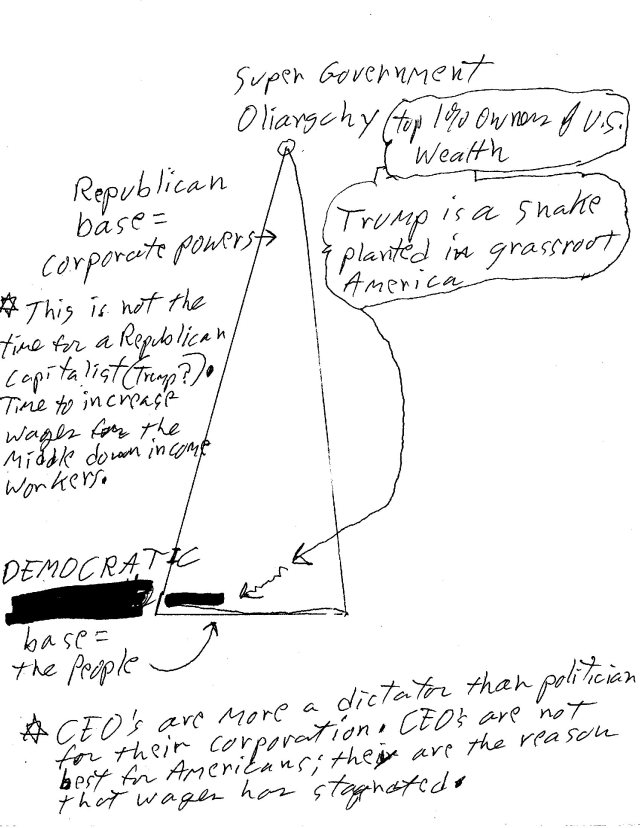 Super Government
Oliargchy
(top 1% owners of U.S.
Wealth
Republican
base =
corporate powers
Trump is a snake
planted in grassroot
America
✡ This is not the
time for a Republican
Capitalist (Trump?).
Time to increase
wages for the
Middle down income
Workers.
DEMOCRATIC
base =
the People
✡ CEO's are more a dictator than politician
for their corporation. CEO's are not
best for Americans; they are the reason
that wages has stagnated.